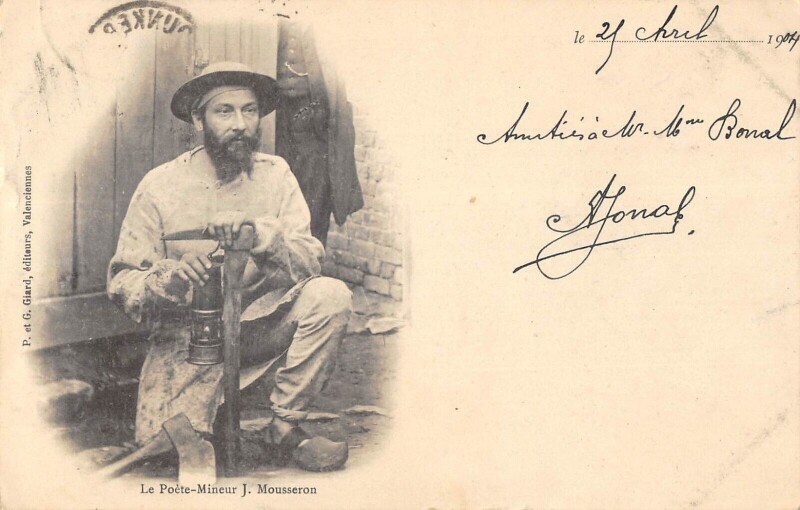 DUNKER
le 25 Avril 1904
Amitiés à Mr. Mme Bonal
P. et G. Giard, éditeurs, Valenciennes
Le Poète-Mineur J. Mousseron